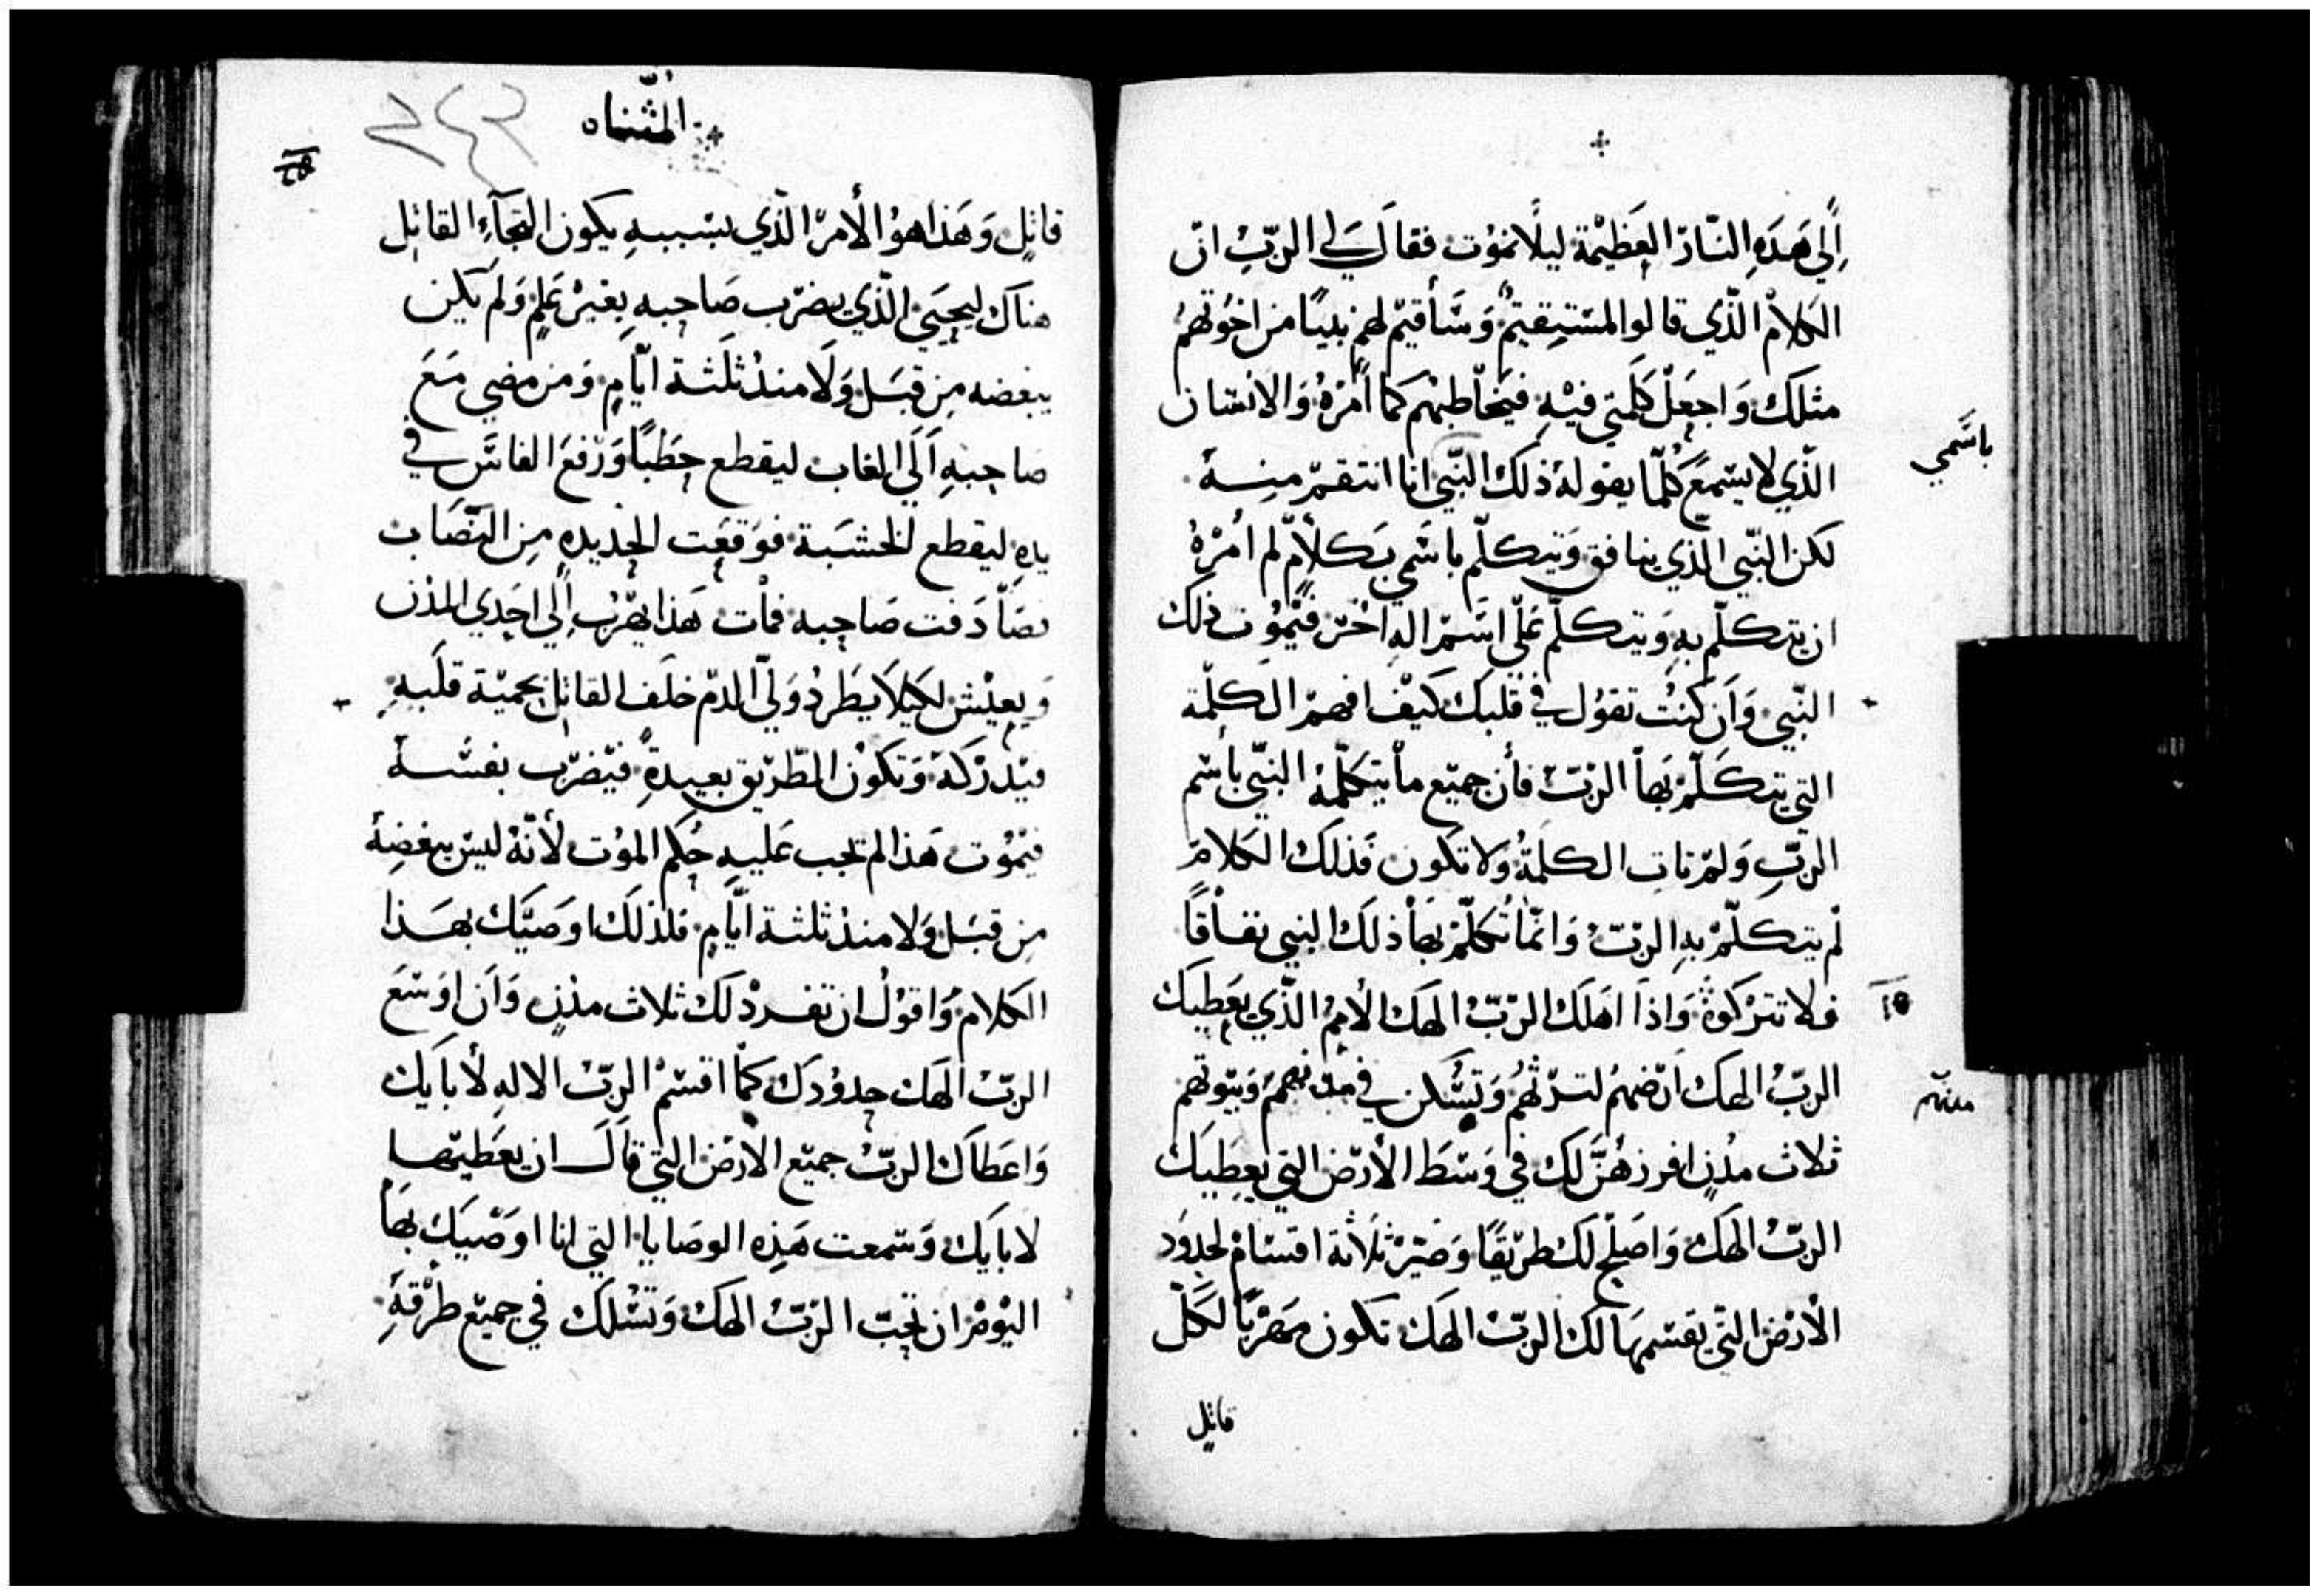 إلي هذه النار العظيمة ليلا نموت فقال لي الرب ان
الكلام الذي قالوا لمستيقيم وسأقيم لهم نبيًا من اخوتهم
مثلك واجعل كلمتي فيه فيخاطبهم كما أمره والانسان
باسمي
الذي لا يسمع كلما يقوله ذلك النبي انا انتقم منه
لكن النبي الذي ينافق ويتكلم باسمي بكلام لم امره
ان يتكلم به ويتكلم علي اسم اله اخر فيموت ذلك
النبي وان كنت تقول في قلبك كيف افهم الكلمة
التي يتكلم بها الرب فأن جميع ما يتكلمه النبي باسم
الرب ولم تات الكلمة ولا تكون فذلك الكلام
لم يتكلم به الرب وانما تكلم بها ذلك النبي نفاقًا
فلا تتركوه واذا اهلك الرب الهك الأمم الذي يعطيك
الرب الهك ارضهم لترثهم وتسكن في مدنهم وبيوتهم
مدنهم
ثلاث مدن افرزهن لك في وسط الأرض التي يعطيك
الرب الهك واصلح لك طريقًا وصير ثلاثة اقسام لحدود
الأرض التي يقسمها لك الرب الهك تكون مهربًا لكل
قاتل
المثناه
٢٤٣
قاتل وهذا هو الأمر الذي بسببه يكون التجآء القاتل
هناك ليحيي الذي يضرب صاحبه بغير علم ولم يكن
يبغضه من قبل ولا منذ ثلثة ايام ومن مضي مع
صاحبه الي الغاب ليقطع حطبًا ورفع الفاس في
يده ليقطع الخشبة فوقعت الحديده من النصاب
فصادفت صاحبه فمات هذا يهرب إلي احدي المدن
ويعيش لكيلا يطرد ولي الدم خلف القاتل بحمية قلبه
فيدركه وتكون الطريق بعيدة فيضرب نفسه
فيموت هذا لم تجب عليه حكم الموت لأنه ليس يبغضه
من قبل ولا منذ ثلثة ايام فلذلك اوصيك بهذا
الكلام واقول ان تفرد لك ثلاث مدن وان اوسع
الرب الهك حدودك كما اقسم الرب الاله لأبايك
واعطاك الرب جميع الأرض التي قال ان يعطيها
لابايك وسمعت هذه الوصايا التي انا اوصيك بها
اليوم ان تحب الرب الهك وتسلك في جميع طرقه